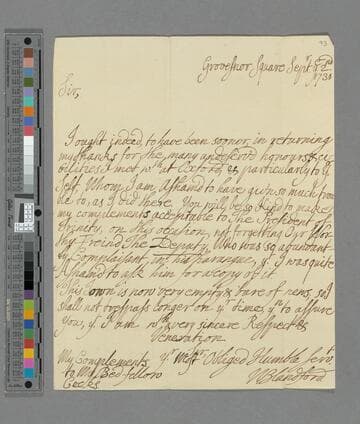 93
Grovesnor Square Sept. 
1731
Sir,
I ought indeed to have been sooner in returning
my thanks for the many undeserv'd honours & ci
vilites I met wth. at Oxford, & particularly to yr
self. Whom I am Ashamd to have givn so much trou
ble to, as I did there. You will be so kind to make
my complements acceptable to The President
Trinety, on this ocation, not forgetting yr Wor
thy Freind The Deputy, Who was so abundant
ly Complaisant, in his harangue, yt. I was quite
Ashamd to ask him for a copy of it.
This town is now very empty & bare of news, so I
shall not trespass longer on yr. time, yn. to assure
you, yt. I am wth. very sincere Respect &
Veneration
My Complements yr. Most Obliged Humble Servt.
to Mr. Bedfellow WBlandford
Cocks